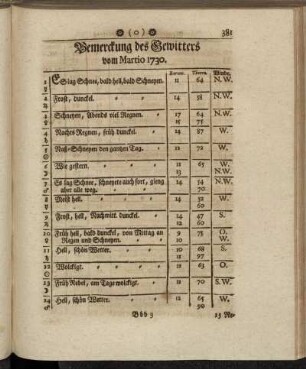 (o) 381
Bemerckung des Gewitters
vom Martio 1730.
Barom. Therm. Winde.
1 ES lag Schnee, bald hell, bald Schneyen. 11 64 N.W.
2 Frost, dunckel. 14 58 N.W.
3 Schneyen, Abends viel Regnen. 17 64 N.W.
15 75
4 Nachts Regnen, früh dunckel. 14 87 W.
5 Nass-Schneyen den gantzen Tag. 11 72 W.
6 Wie gestern. 11 65 W.
13 N.W.
7 Es lag Schnee, schneyete auch fort, gieng 14 54 N.W.
aber alle weg. 70
8 Meist hell. 14 52 W.
60
9 Frost, hell, Nachmitt. dunckel. 14 47 S.
10 Früh hell, bald dunckel, von Mittag an 9 75 O.
Regen und Schneyen. 10 W.
11 Hell, schön Wetter. 10 68 S.
11 97
12 Wolckigt. 11 63 O.
13 Früh Nebel, am Tage wolckigt. 11 70 S.W.
14 Hell, schön Wetter. 12 65 W.
90
Bbb 3 15 Ne-